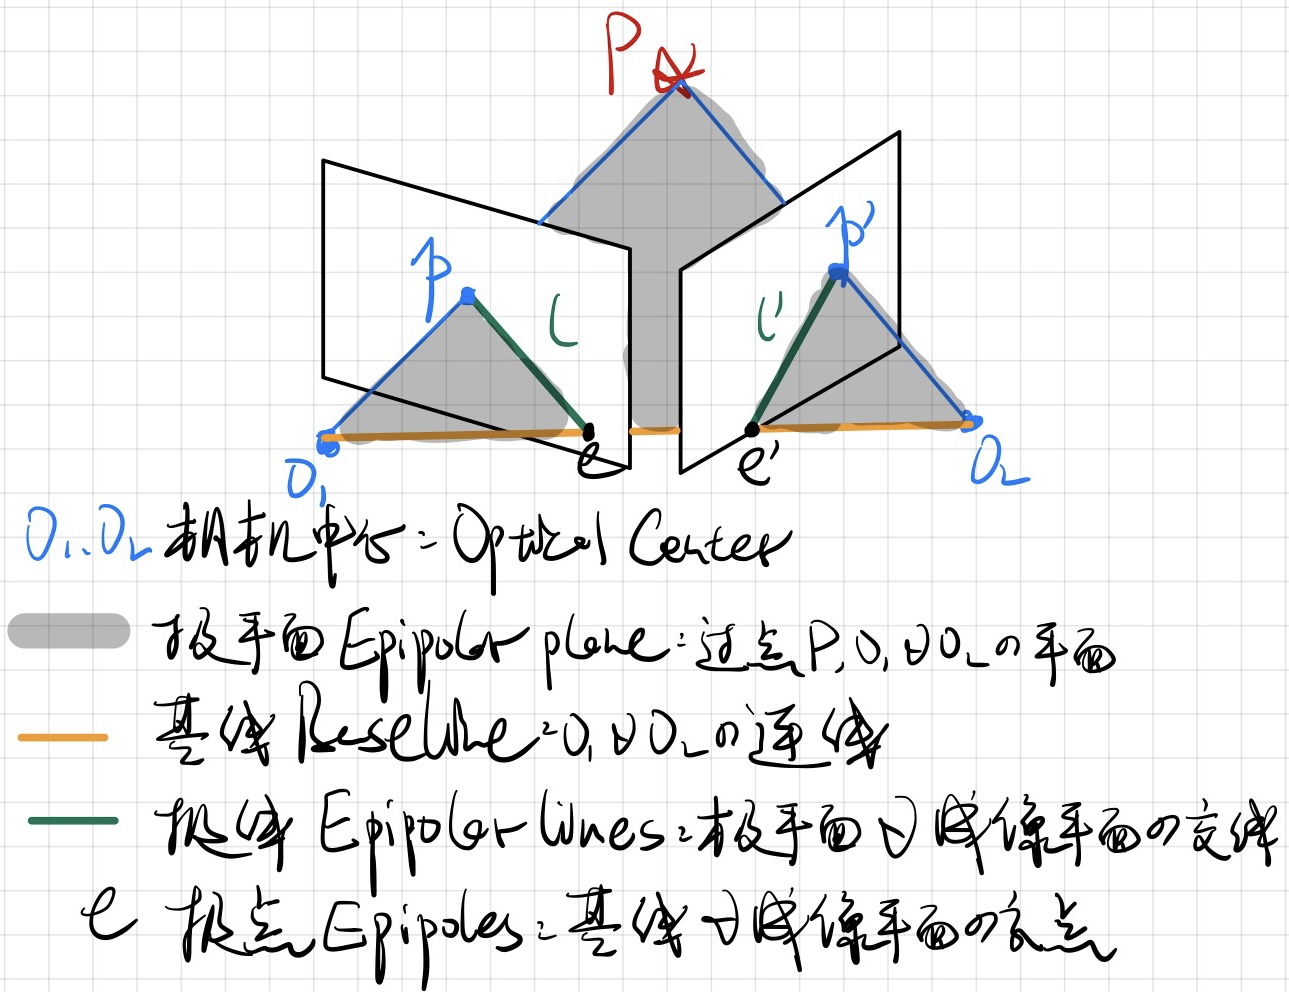 P
p
l
l'
p'
O₁
e
e'
O₂
O₁、O₂ 相机中心：Optical Center
极平面 Epipolar plane：过点P,O₁与O₂の平面
基线 Baseline：O₁与O₂の连线
极线 Epipolar lines：极平面与成像平面の交线
e 极点 Epipoles：基线与成像平面の交点